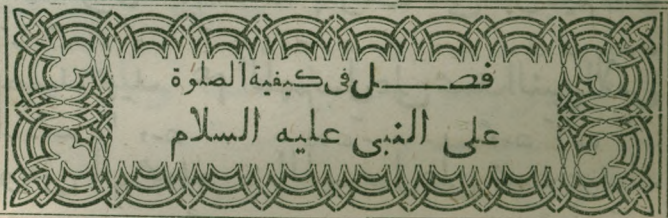 فصل فى كيفية الصلوة
على النبى عليه السلام